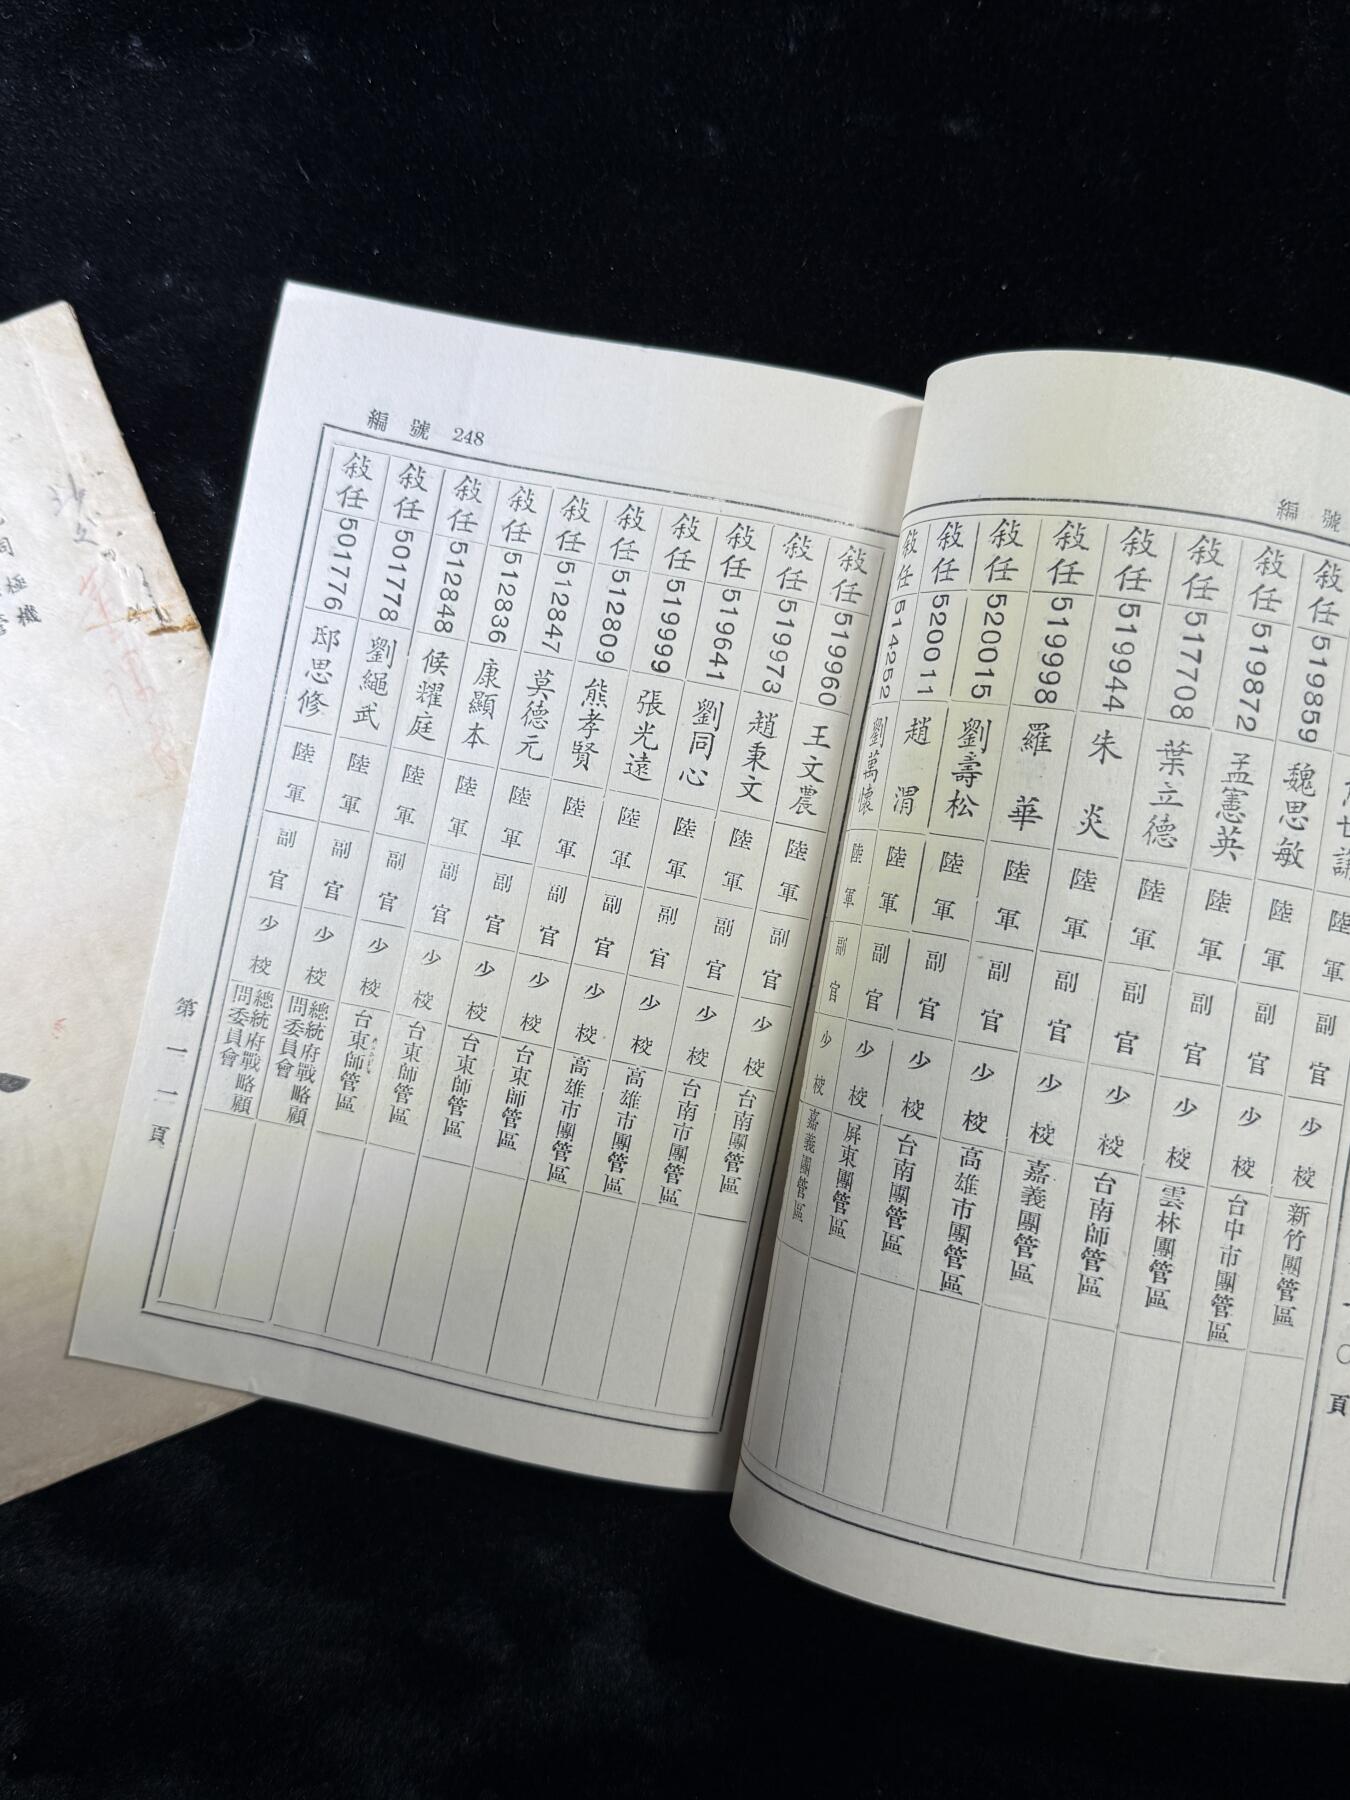 編號
敍任 519859 魏思敏 陸軍 副官 少校 新竹團管區
敍任 519872 孟憲英 陸軍 副官 少校 台中市團管區
敍任 517708 葉立德 陸軍 副官 少校 雲林團管區
敍任 519944 朱炎 陸軍 副官 少校 台南師管區
敍任 519998 羅華 陸軍 副官 少校 嘉義團管區
敍任 520015 劉壽松 陸軍 副官 少校 高雄市團管區
敍任 520011 趙渭 陸軍 副官 少校 台南團管區
敍任 514252 劉萬懷 陸軍 副官 少校 屏東團管區
嘉義團管區
○頁
編號 248
敍任 519960 王文農 陸軍 副官 少校 台南團管區
敍任 519973 趙秉文 陸軍 副官 少校 台南市團管區
敍任 519641 劉同心 陸軍 副官 少校 高雄市團管區
敍任 519999 張光遠 陸軍 副官 少校 高雄市團管區
敍任 512809 熊孝賢 陸軍 副官 少校 台東師管區
敍任 512847 莫德元 陸軍 副官 少校 台東師管區
敍任 512836 康顯本 陸軍 副官 少校 台東師管區
敍任 512848 候耀庭 陸軍 副官 少校 台東師管區
敍任 501778 劉繩武 陸軍 副官 少校 總統府戰略顧問委員會
敍任 501776 邸思修 陸軍 副官 少校 總統府戰略顧問委員會
第一一頁